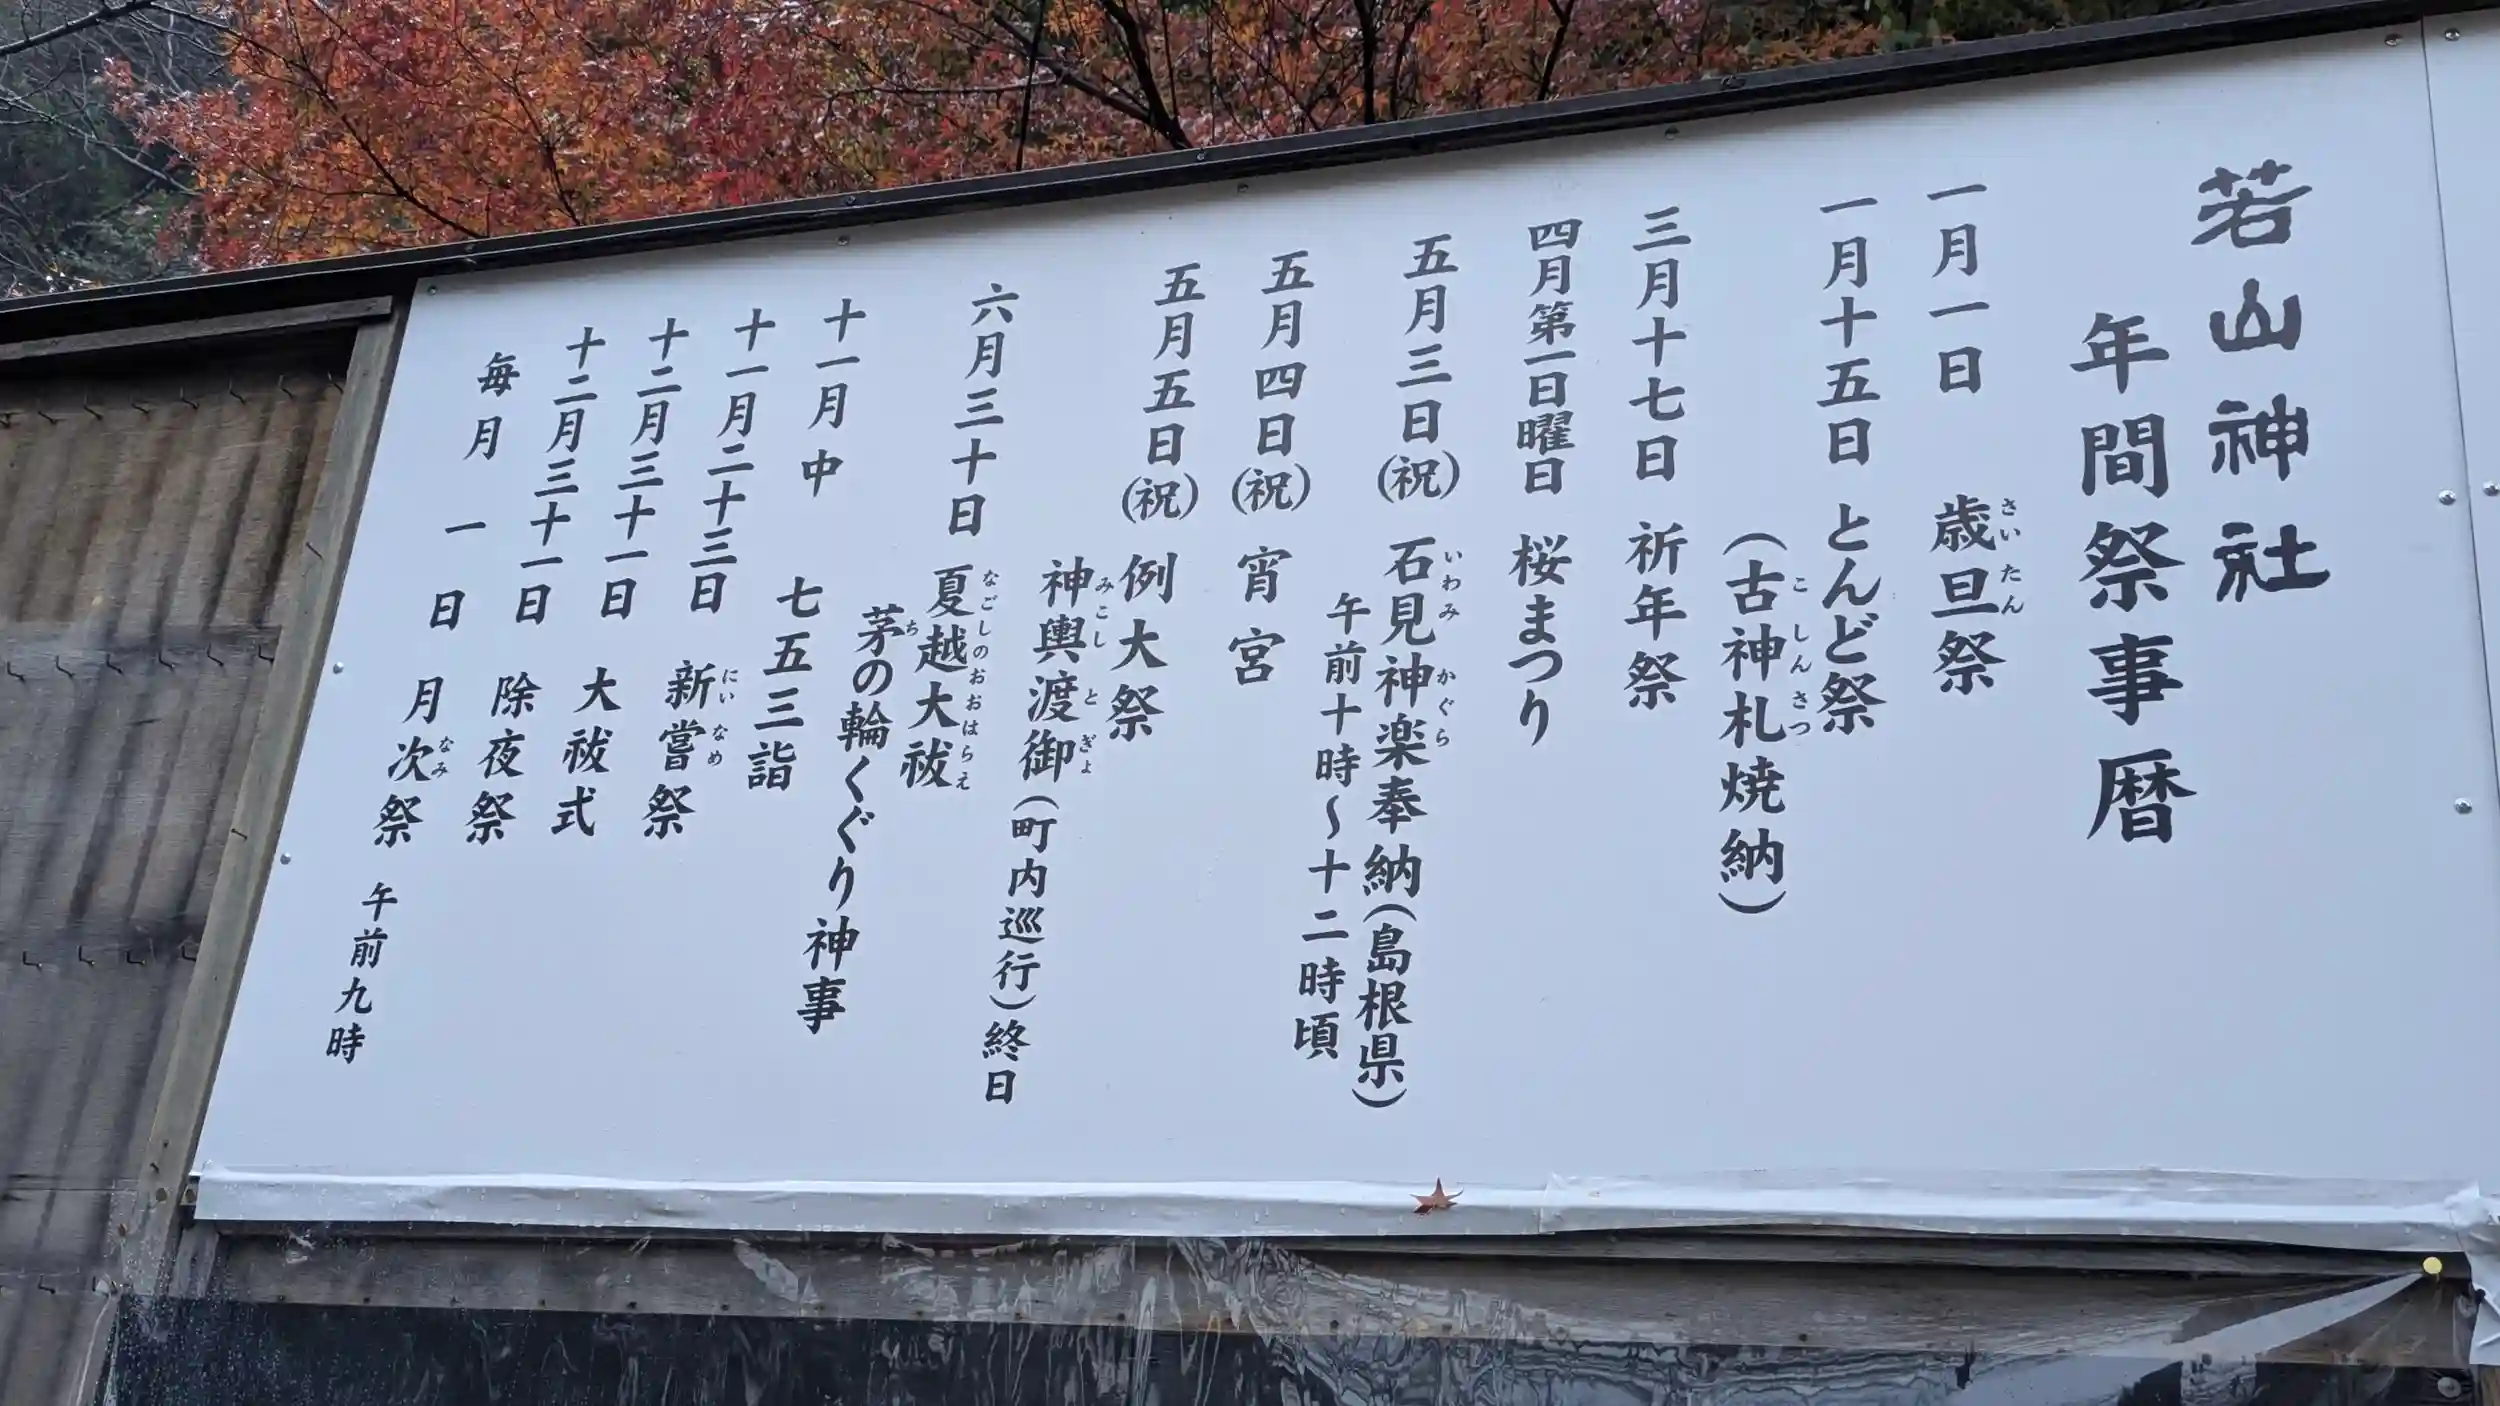 若山神社
年間祭事暦
一月一日 歳旦祭
さいたん
一月十五日 とんど祭
(古神札焼納)
こしんさつ
三月十七日 祈年祭
四月第一日曜日 桜まつり
五月三日(祝) 石見神楽奉納(島根県)
いわみ かぐら
午前十時~十二時頃
五月四日(祝) 宵宮
五月五日(祝) 例大祭
神輿渡御(町内巡行)終日
みこし とぎょ
六月三十日 夏越大祓
なごしのおおはらえ
茅の輪くぐり神事
ち
十一月中 七五三詣
十一月二十三日 新嘗祭
にいなめ
十二月三十一日 大祓式
十二月三十一日 除夜祭
毎月一日 月次祭 午前九時
なみ